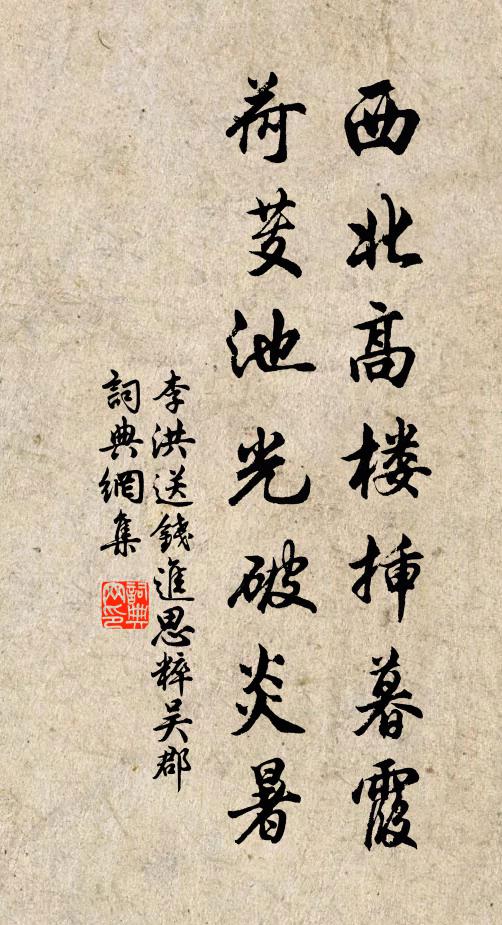 西北高楼揷暮霞
荷芰池光破炎暑
李洪送錢進思粹吴郡
詞典網集
詞典
网印